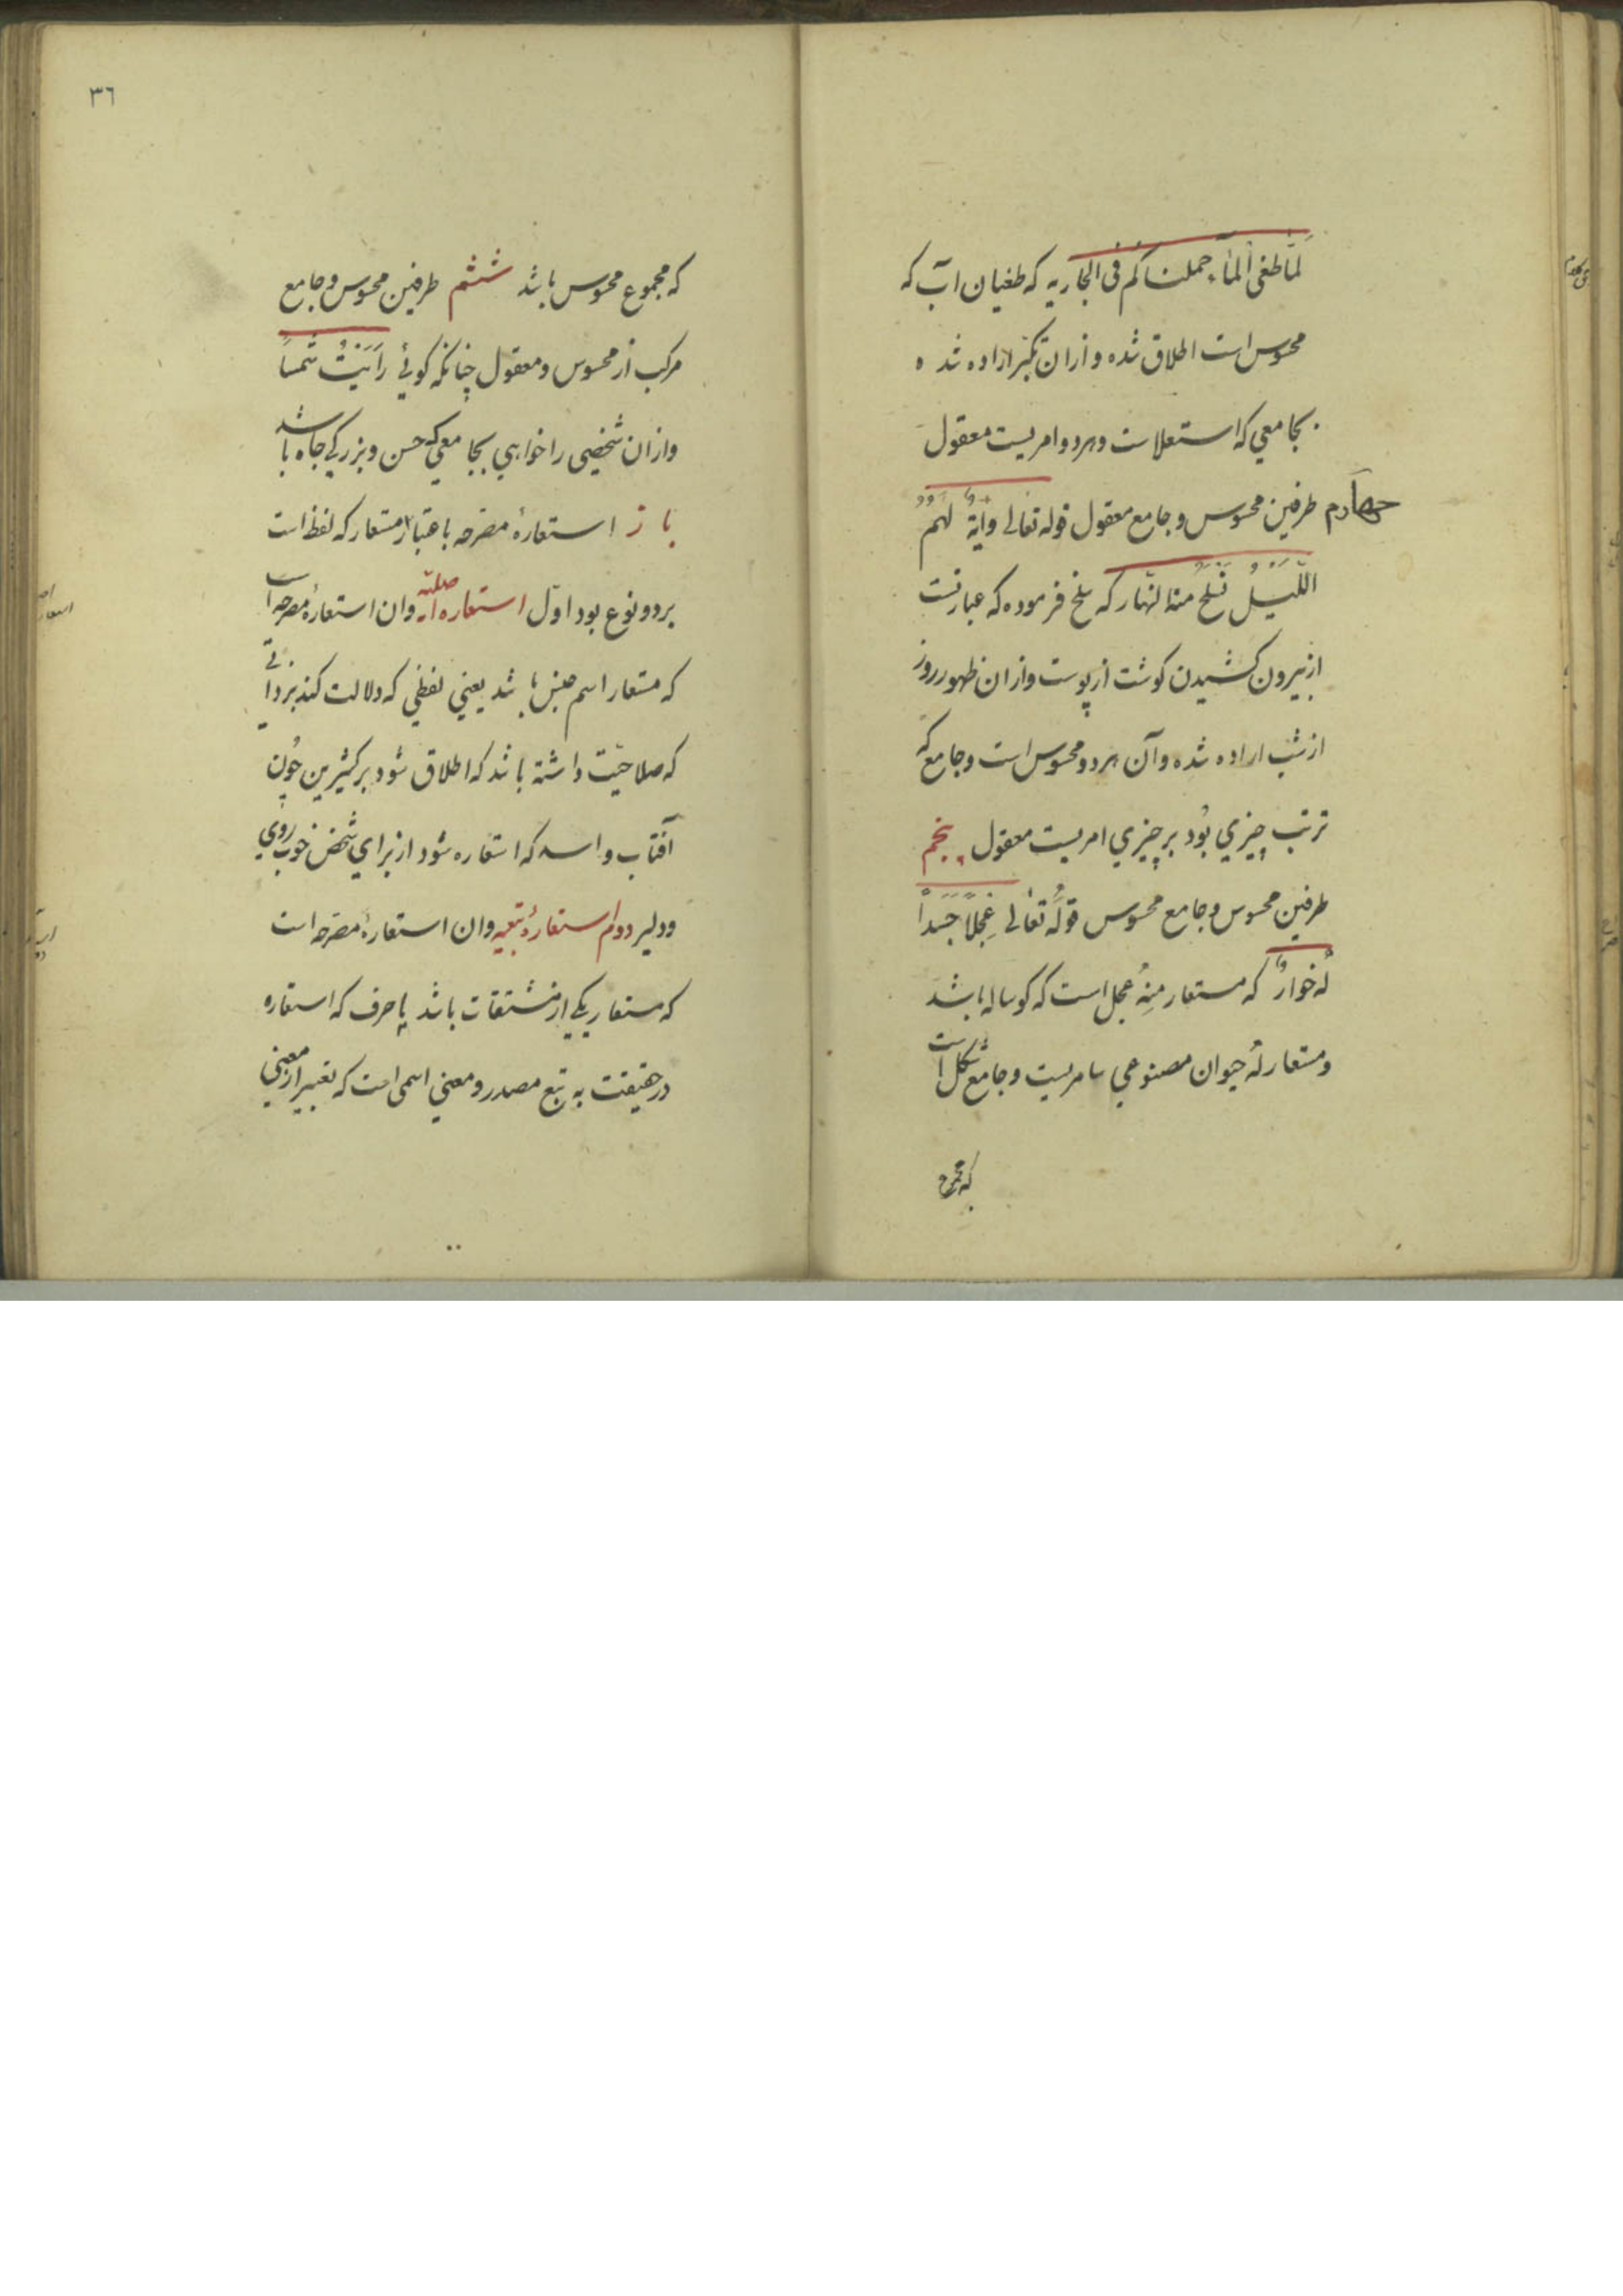 لَمّا طغی المآء حملناکم فی الجاریه که طغیان آب که
محسوس است اطلاق شده و ازان تکبّر اراده شده
بجامعی که استعلاست و هردو امریست معقول
چهارم طرفین محسوس و جامع معقول قوله تعالی وآیَةٌ لَهُمُ
اللَّیْلُ نَسْلَخُ منه النهار که سلخ فرموده که عبارتست
از بیرون کشیدن کوشت از پوست و ازان ظهور روز
از شب اراده شده و آن هردو محسوس است و جامع که
ترتب چیزی بُود بر چیزی امریست معقول پنجم
طرفین محسوس و جامع محسوس قولُه تعالی عِجْلاً جَسَداً
لَهُ خوارٌ که مستعار مِنهُ عجل است که کوساله باشد
و مستعار لَهُ حیوان مصنوعی سامریست و جامع شکل است
که مجموع
٣٦
که مجموع محسوس باشد ششم طرفین محسوس و جامع
مرکب از محسوس و معقول چنانکه کوئی رَاَیْتُ شَمساً
و ازان شخصی را خواهی بجامعی که حسن و بزرکی جاه باشد
باز استعارهٔ مصرحه باعتبار مستعار که لفظ است
بر دو نوع بود اوّل استعاره اصلیّه وان استعارهٔ مصرحه است
که مستعار اسم جنس باشد یعنی لفظی که دلالت کند بر ذاتی
که صلاحیّت داشته باشد که اطلاق شود بر کثیرین چُون
آفتاب و اسد که استعاره شود از برای شخص خوب روی
و دلیر دوم استعارهٔ تبعیه وان استعارهٔ مصرحه است
که مستعار یکی از مشتقات باشد یا حرف که استعاره
در حقیقت به تبع مصدر و معنی اسمی است که تعبیر از معنی